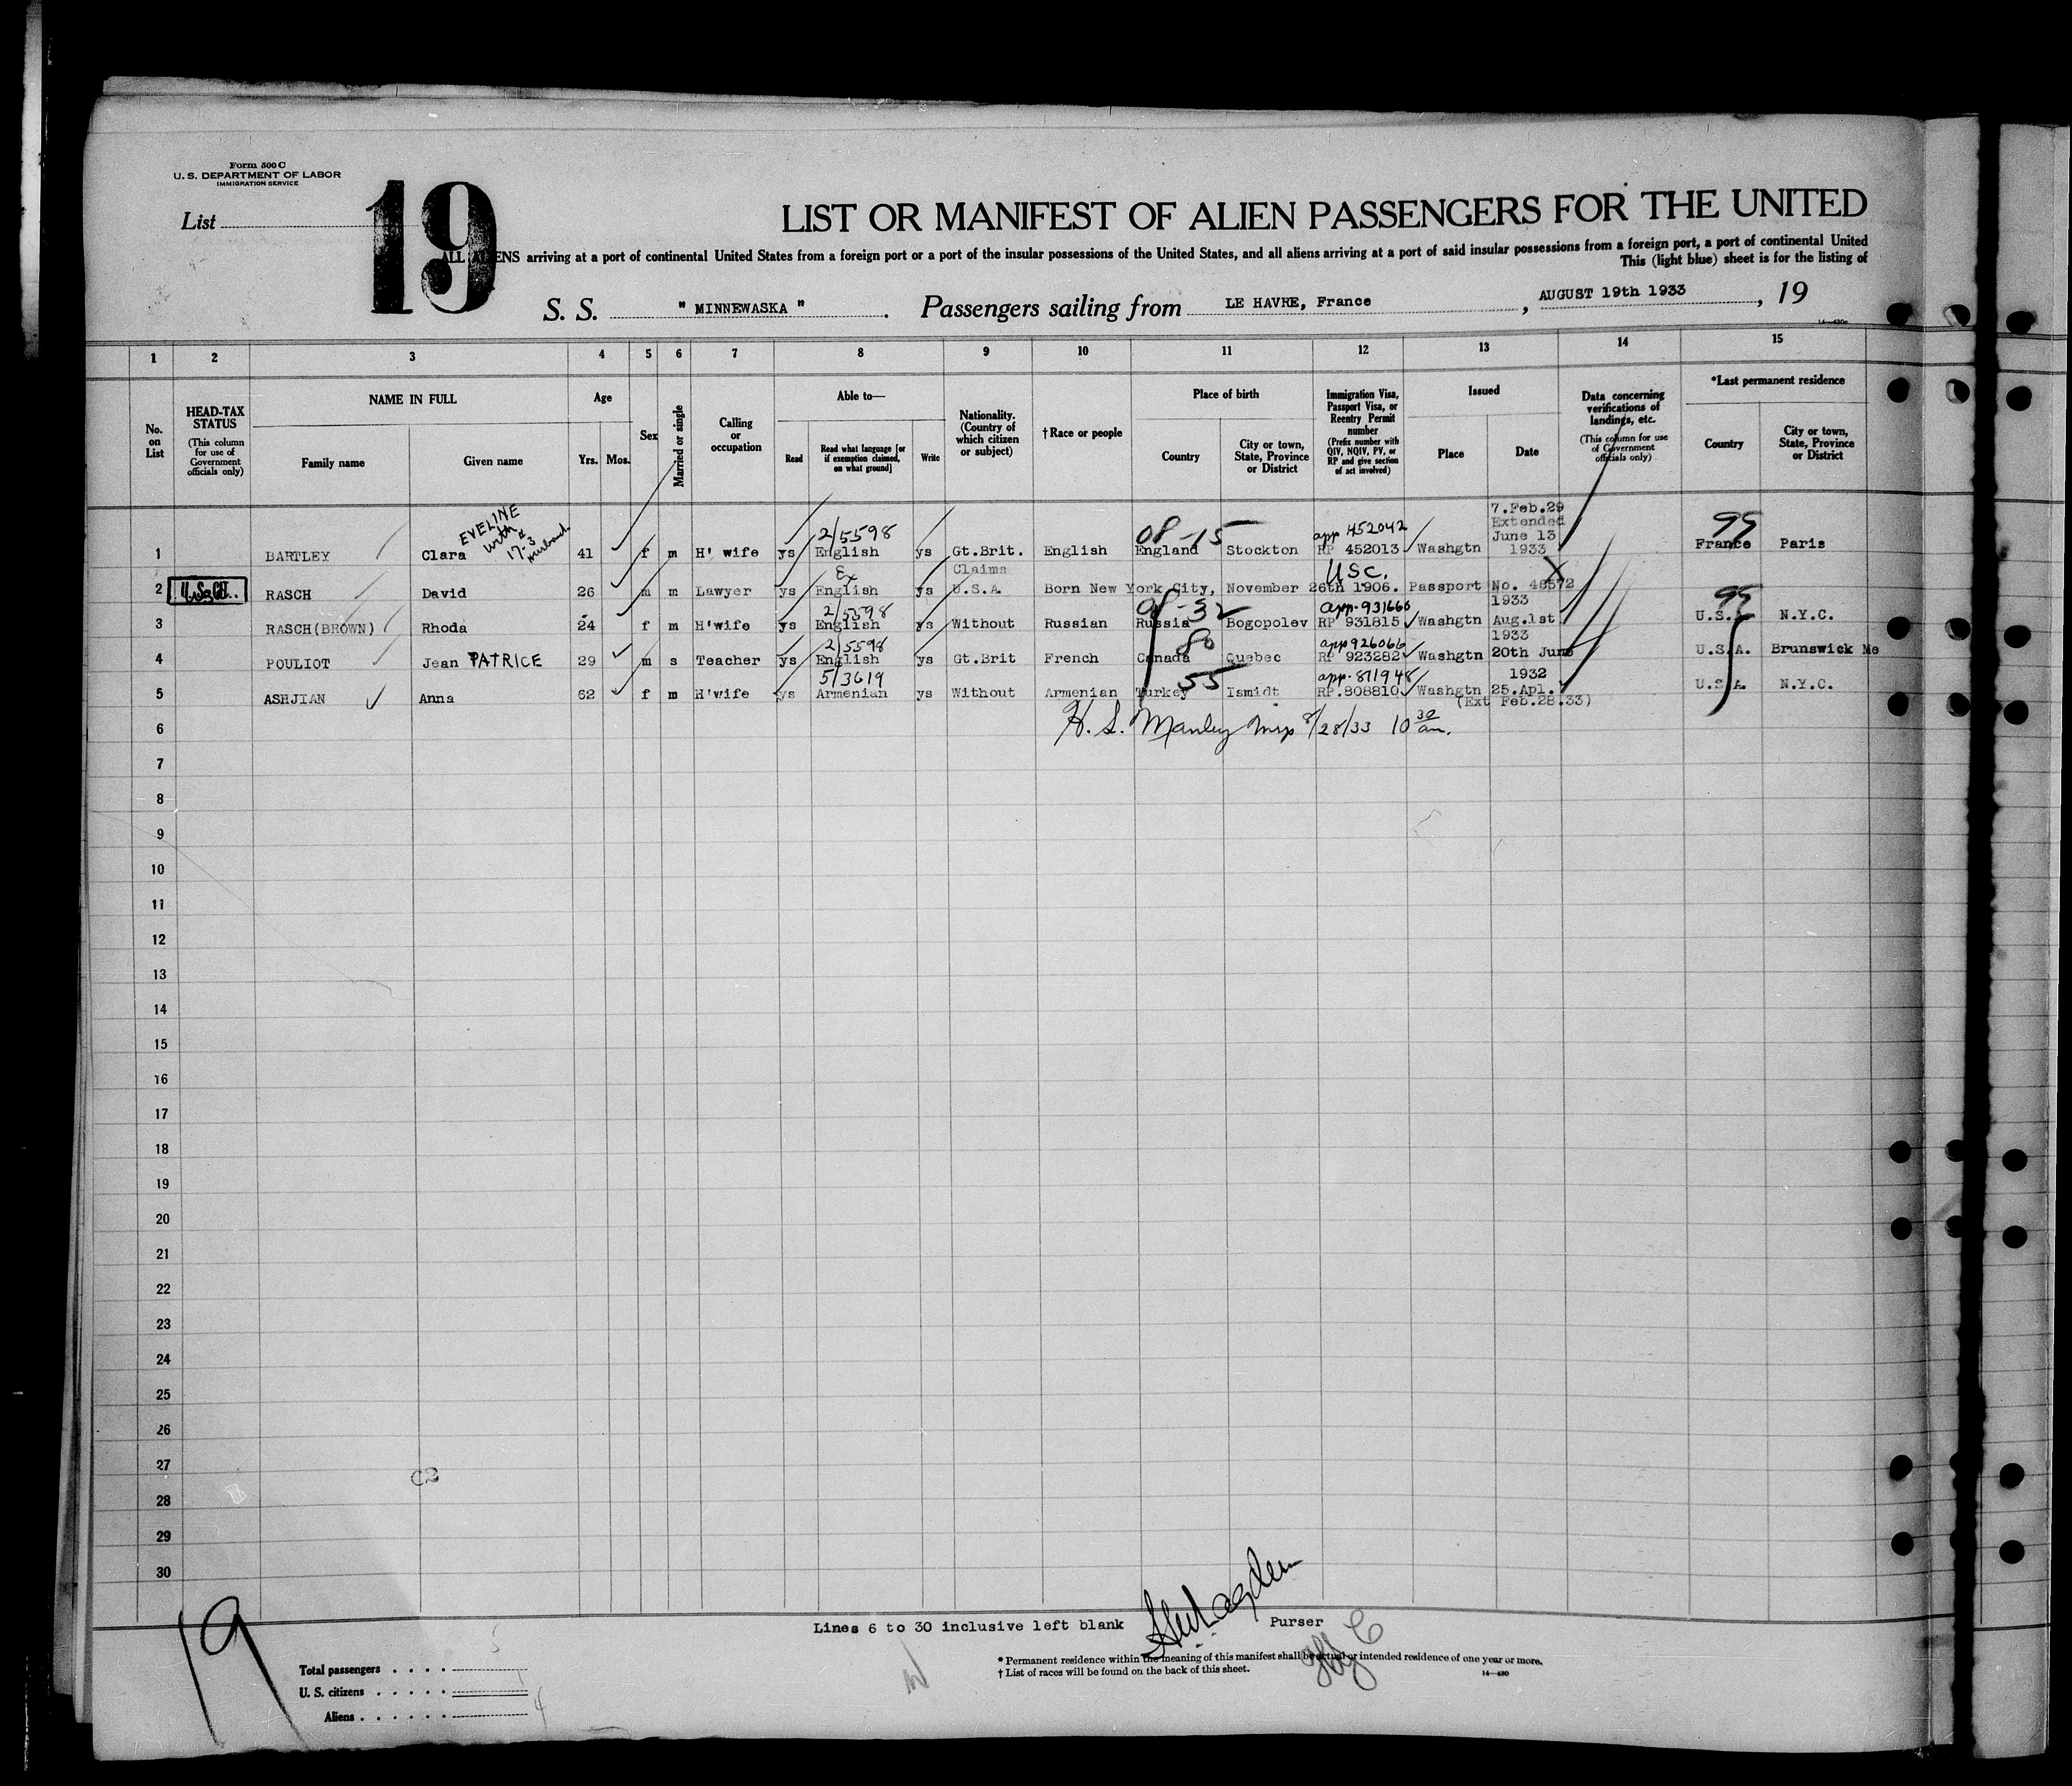 Form 500 C
U. S. DEPARTMENT OF LABOR
IMMIGRATION SERVICE
List
19
LIST OR MANIFEST OF ALIEN PASSENGERS FOR THE UNITED
ALL ALIENS arriving at a port of continental United States from a foreign port or a port of the insular possessions of the United States, and all aliens arriving at a port of said insular possessions from a foreign port, a port of continental United
This (light blue) sheet is for the listing of
S. S. " MINNEWASKA " . Passengers sailing from LE HAVRE, France , AUGUST 19th 1933 , 19
1 2 3 4 5 6 7 8 9 10 11 12 13 14 15
No. on List
HEAD-TAX STATUS
(This column for use of Government officials only)
NAME IN FULL
Family name
Given name
Age
Yrs.
Mos.
Sex
Married or single
Calling or occupation
Able to—
Read
Read what language [or if exemption claimed, on what ground]
Write
Nationality. (Country of which citizen or subject)
†Race or people
Place of birth
Country
City or town, State, Province or District
Immigration Visa, Passport Visa, or Reentry Permit number
(Prefix number with QIV, NQIV, PV, or RP and give section of act involved)
Issued
Place
Date
Data concerning verifications of landings, etc.
(This column for use of Government officials only)
*Last permanent residence
Country
City or town, State, Province or District
EVELINE with 17-3 husband
2/5598
08-15
app 452042
7.Feb.29
Extended
June 13
99
1 BARTLEY Clara 41 f m H' wife ys English ys Gt.Brit. English England Stockton RP 452013 Washgtn 1933 France Paris
Claims
USC.
2 U.S. Cit. RASCH David 26 m m Lawyer ys English ys U.S.A. Born New York City, November 26th 1906. Passport No. 46572
2/5598
08-32
app. 931660
1933
99
3 RASCH(BROWN) Rhoda 24 f m H'wife ys English ys Without Russian Russia Bogopolev RP 931815 Washgtn Aug.1st U.S.A. N.Y.C.
2/5598
80
app 926066
1933
4 POULIOT Jean PATRICE 29 m s Teacher ys English ys Gt.Brit French Canada Quebec RP 923282 Washgtn 20th June U.S.A. Brunswick Me
5/3619
55
app. 871948
1932
5 ASHJIAN Anna 62 f m H'wife ys Armenian ys Without Armenian Turkey Ismidt RP.808810 Washgtn 25.Apl. U.S.A. N.Y.C.
(Ext Feb.28.33)
6 H. S. Manley Insp 8/28/33 10 30 am.
7
8
9
10
11
12
13
14
15
16
17
18
19
20
21
22
23
24
25
26
27
28
29
30
19
Lines 6 to 30 inclusive left blank
Purser
Total passengers . . . . 5
U. S. citizens . . . . . 1
Aliens . . . . . . 4
* Permanent residence within the meaning of this manifest shall be actual or intended residence of one year or more.
† List of races will be found on the back of this sheet.
14—430